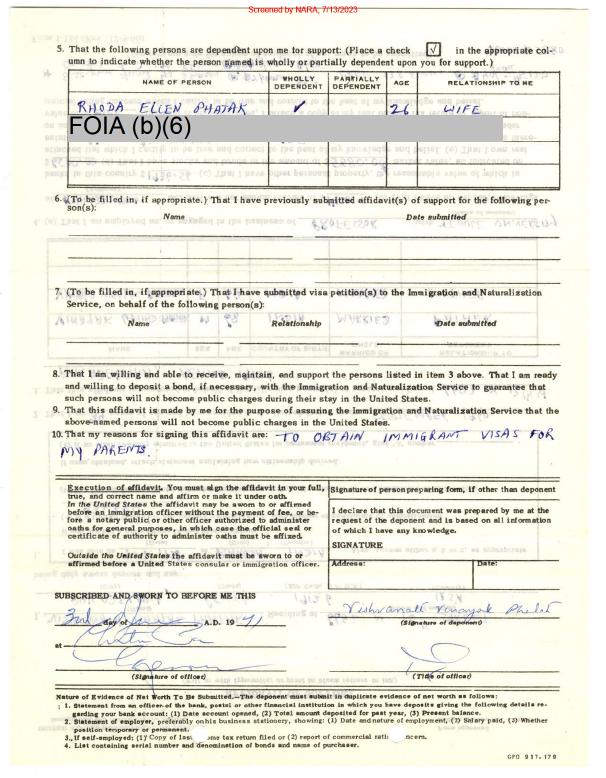 Screened by NARA, 7/13/2023
5. That the following persons are dependent upon me for support: (Place a check √ in the appropriate col-
umn to indicate whether the person named is wholly or partially dependent upon you for support.)
NAME OF PERSON WHOLLY DEPENDENT PARTIALLY DEPENDENT AGE RELATIONSHIP TO ME
RHODA ELLEN PHATAK ✓ 26 WIFE
FOIA (b)(6)
6. (To be filled in, if appropriate.) That I have previously submitted affidavit(s) of support for the following per-
son(s):
Name Date submitted
7. (To be filled in, if appropriate.) That I have submitted visa petition(s) to the Immigration and Naturalization
Service, on behalf of the following person(s):
Name Relationship Date submitted
8. That I am willing and able to receive, maintain, and support the persons listed in item 3 above. That I am ready
and willing to deposit a bond, if necessary, with the Immigration and Naturalization Service to guarantee that
such persons will not become public charges during their stay in the United States.
9. That this affidavit is made by me for the purpose of assuring the Immigration and Naturalization Service that the
above-named persons will not become public charges in the United States.
10. That my reasons for signing this affidavit are: TO OBTAIN IMMIGRANT VISAS FOR
MY PARENTS.
Execution of affidavit. You must sign the affidavit in your full,
true, and correct name and affirm or make it under oath.
In the United States the affidavit may be sworn to or affirmed
before an immigration officer without the payment of fee, or be-
fore a notary public or other officer authorized to administer
oaths for general purposes, in which case the official seal or
certificate of authority to administer oaths must be affixed.
Outside the United States the affidavit must be sworn to or
affirmed before a United States consular or immigration officer.
Signature of person preparing form, if other than deponent
I declare that this document was prepared by me at the
request of the deponent and is based on all information
of which I have any knowledge.
SIGNATURE
Address: Date:
SUBSCRIBED AND SWORN TO BEFORE ME THIS
3rd day of A.D. 19 71
(Signature of deponent)
at
(Signature of officer) (Title of officer)
Nature of Evidence of Net Worth To Be Submitted.—The deponent must submit in duplicate evidence of net worth as follows:
1. Statement from an officer of the bank, postal or other financial institution in which you have deposits giving the following details re-
garding your bank account: (1) Date account opened, (2) Total amount deposited for past year, (3) Present balance.
2. Statement of employer, preferably on his business stationery, showing: (1) Date and nature of employment, (2) Salary paid, (3) Whether
position temporary or permanent.
3. If self-employed: (1) Copy of last ome tax return filed or (2) report of commercial rati ncern.
4. List containing serial number and denomination of bonds and name of purchaser.
GPO 917-179